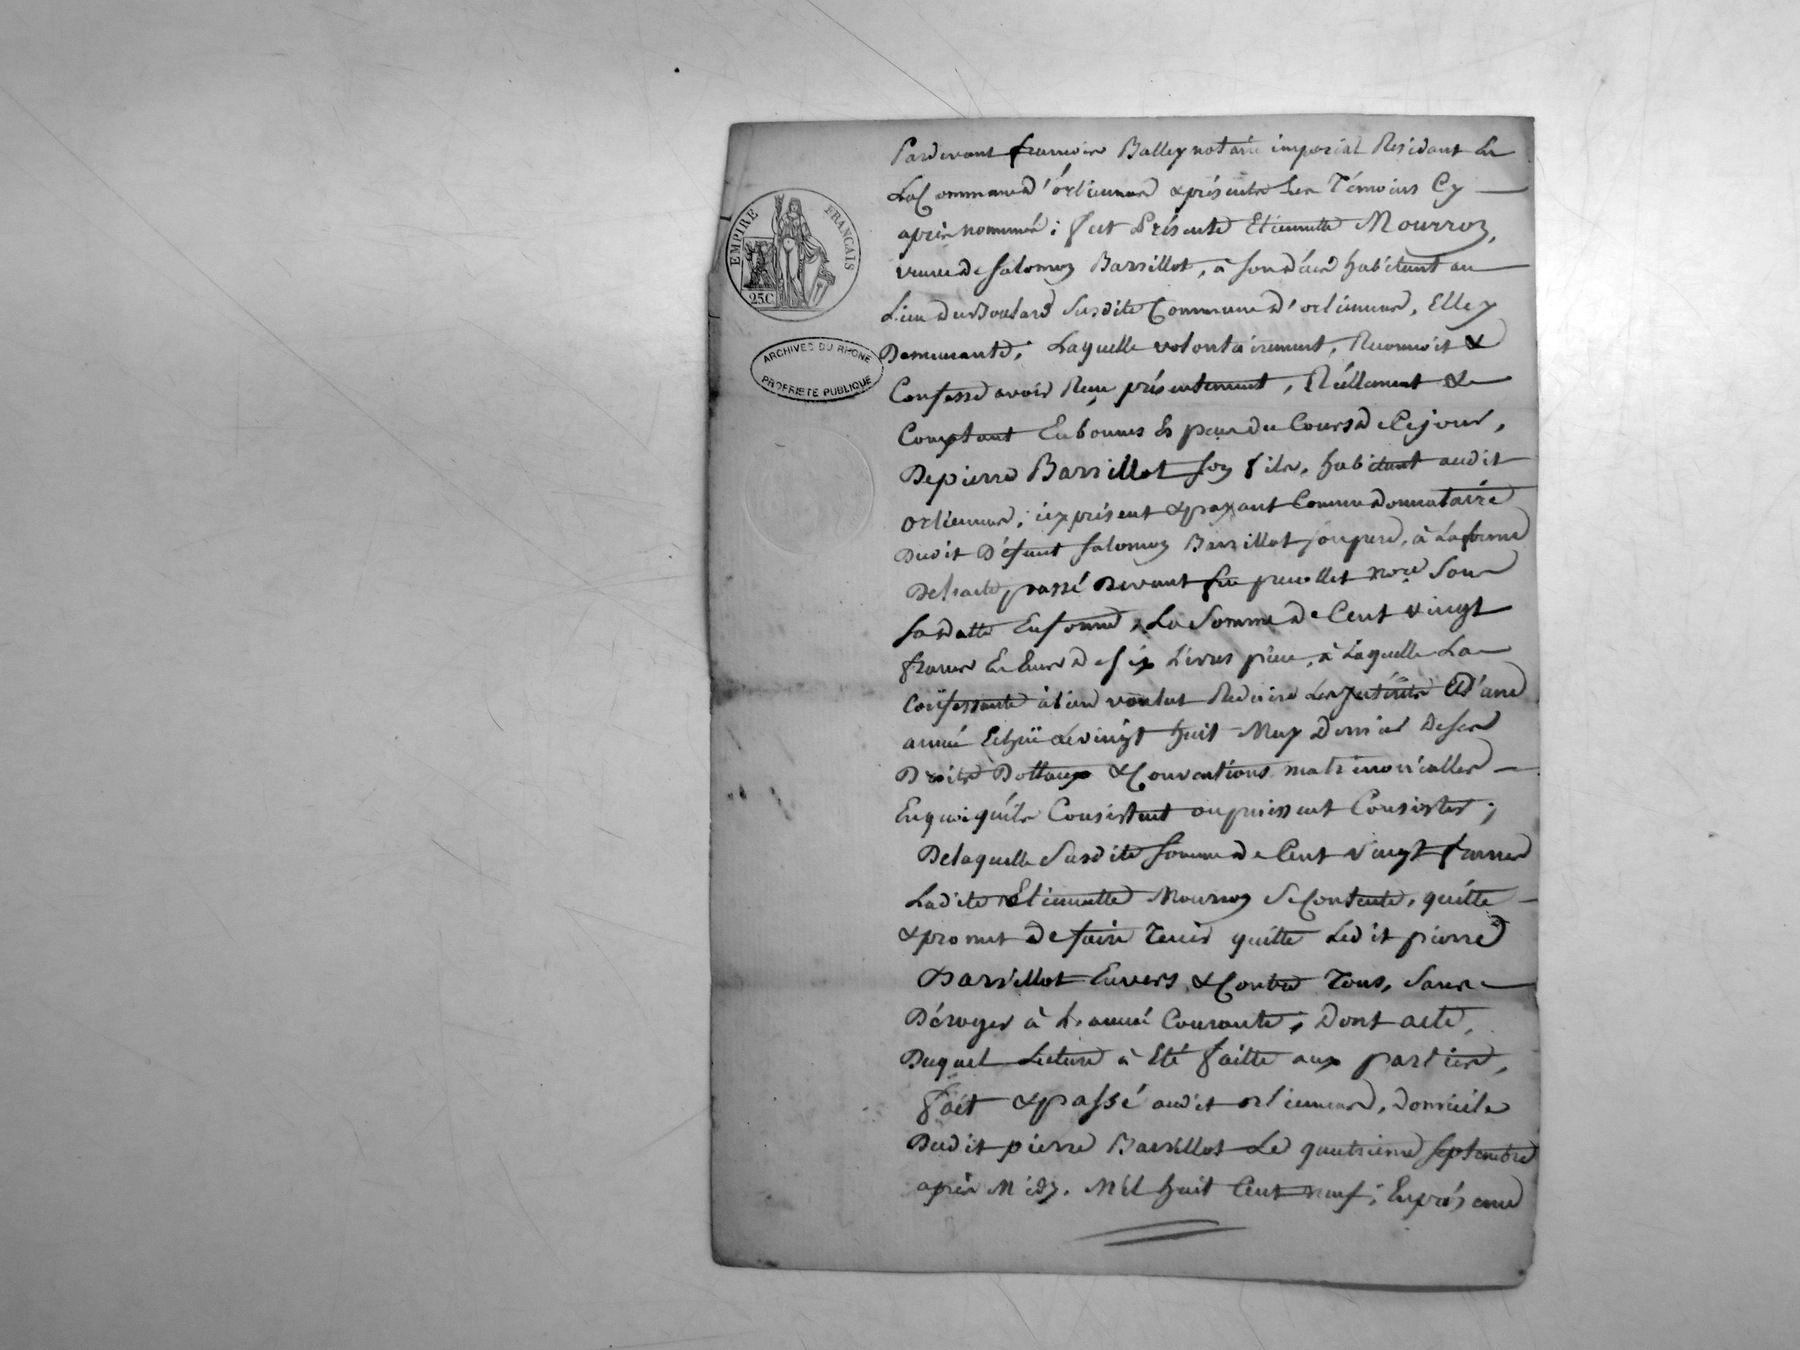 EMPIRE FRANÇAIS
25C
ARCHIVES DU RHONE
PROPRIETE PUBLIQUE
Pardevant francois Balley notaire imperial Residant En
La Commune d'orlienas & présents Les Témoins Cy
après nommés; fut Présente Etiennette Mourron,
veuve de Salomon Barrillot, à son décès habitant au
Lieu du Boulard Susdite Commune d'orlienas, Elle y
Demeurante, Laquelle volontairement, Reconnoit &
Confesse avoir Reçu présentement, Réellement &
Comptant En bonnes Espèces du Cours de Cejour,
De pierre Barrillot son fils, habitant audit
orlienas, icy présent & payant Comme donnataire
Dudit Défunt Salomon Barrillot son pere, à La forme
De l'acte passé Devant feu no.re Sous
Sa datte En forme, La Somme de Cent vingt
francs En Ecus de six Livres pièce, à Laquelle La
Confessante à bien voulut Reduire Les Intérêts d'une
année Echüe Le vingt huit May Dernier De ses
Droits Dottaux & Conventions matrimonialles
En quoi qu'ils Consistent ou puissent Consister;
De laquelle Susdite Somme de Cent vingt francs
Ladite Etiennette Mourron Se Contente, quitte
& promet de faire Tenir quitte Ledit pierre
Barrillot Envers & Contre Tous, Sans
Déroger à L'année Courante; Dont acte,
Duquel Lecture à Eté faitte aux parties,
fait & passé audit orlienas, domicile
Dudit pierre Barrillot Le quatrieme septembre
après Midy, Mil huit Cent neuf; En présence